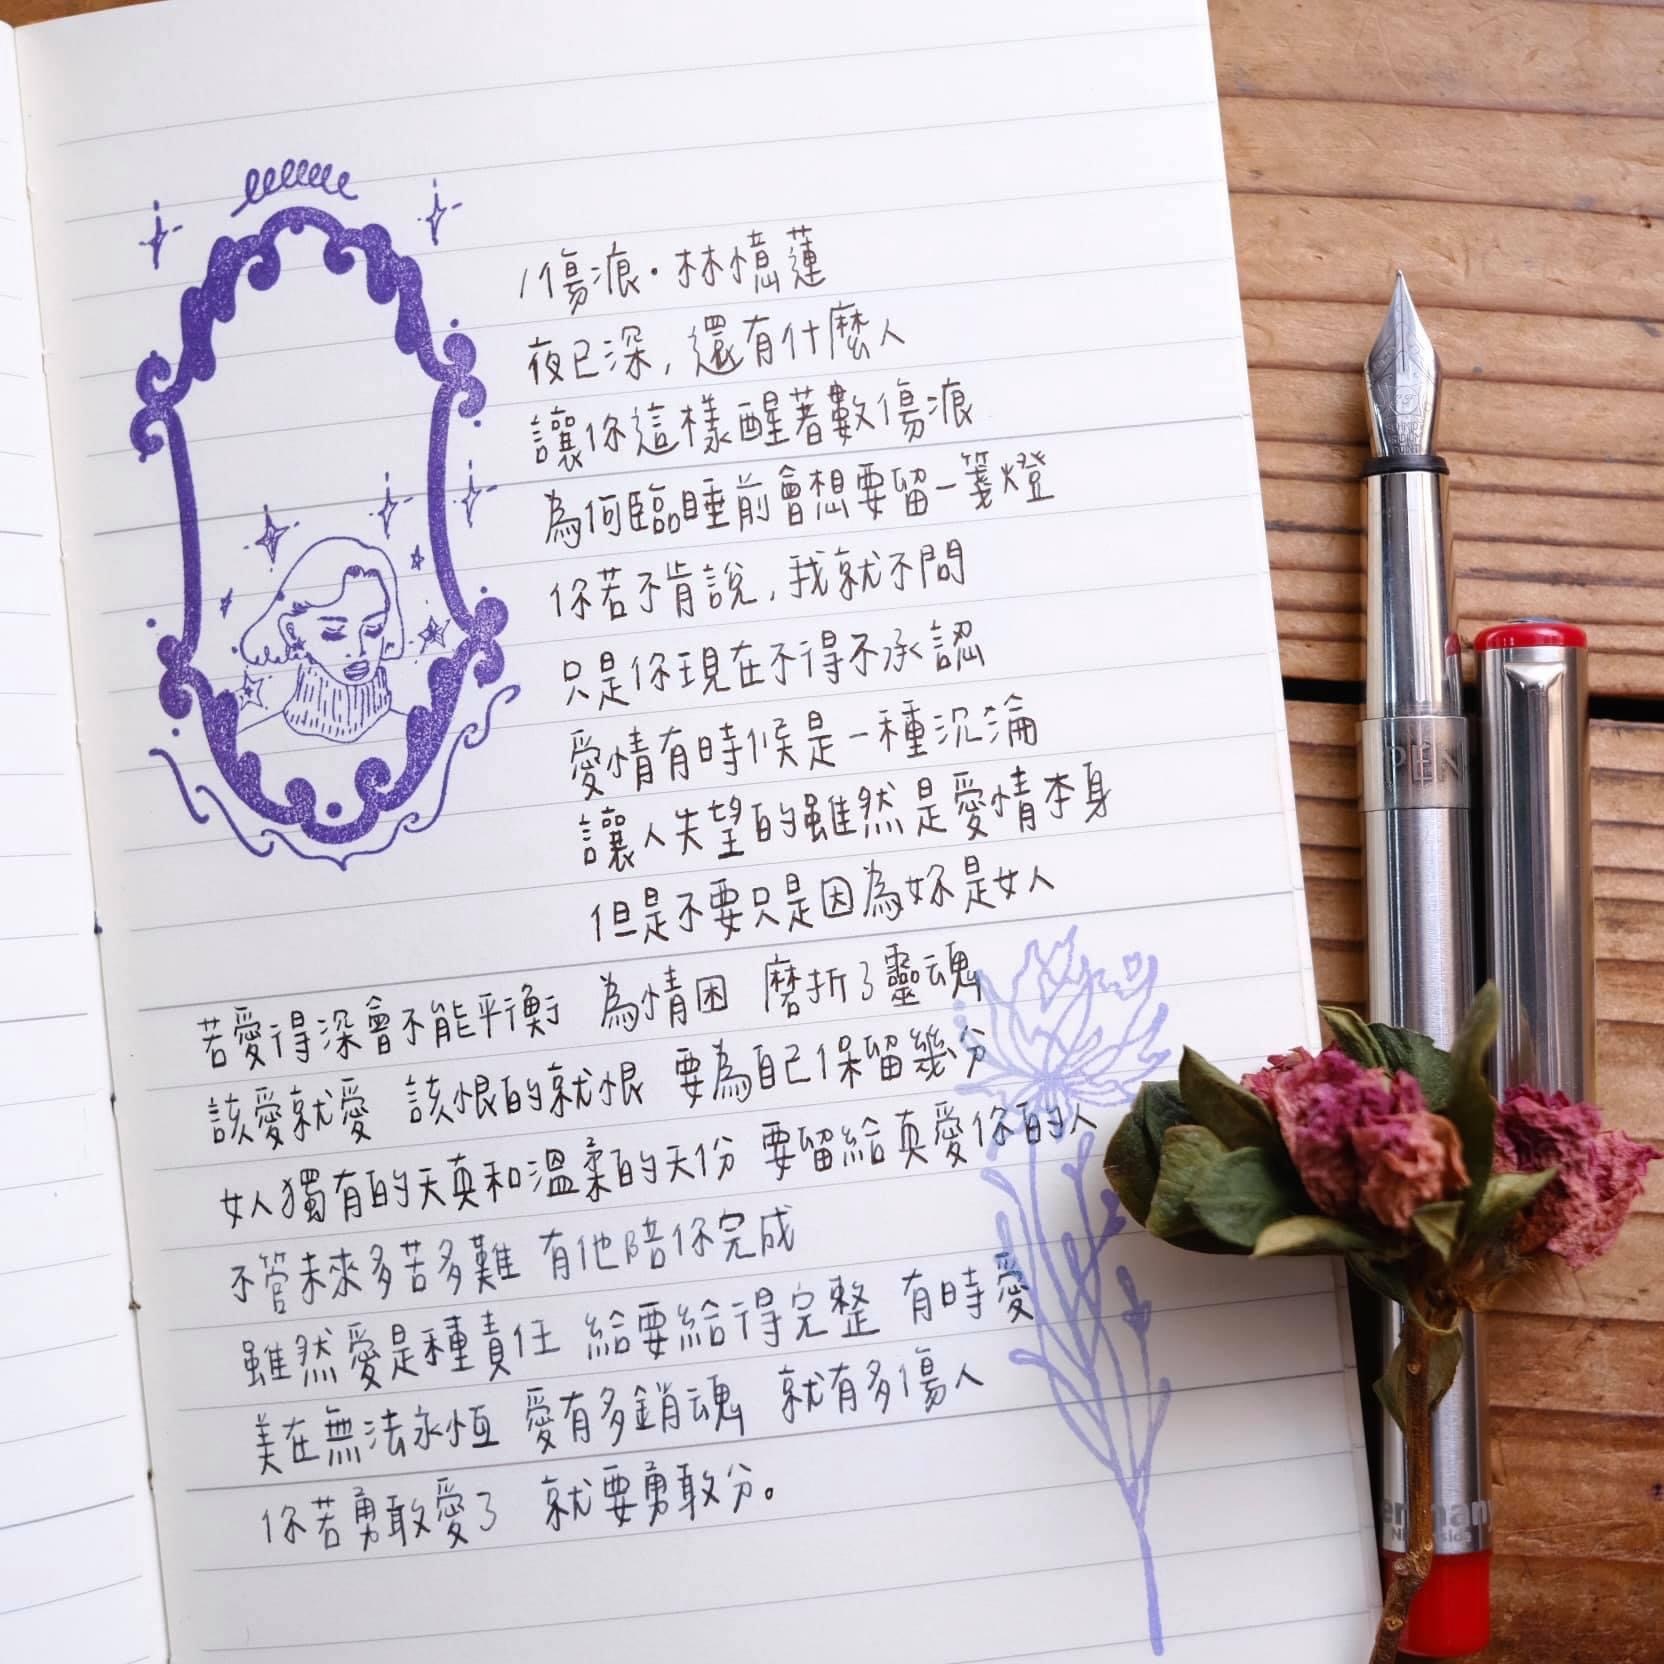 /傷痕·林憶蓮
夜已深，還有什麼人
讓你這樣醒著數傷痕
為何臨睡前會想要留一箋燈
你若不肯說，我就不問
只是你現在不得不承認
愛情有時候是一種沉淪
讓人失望的雖然是愛情本身
但是不要只是因為妳是女人
若愛得深會不能平衡 為情困 磨折了靈魂
該愛就愛 該恨的就恨 要為自己保留幾分
女人獨有的天真和溫柔的天份 要留給真愛你的人
不管未來多苦多難 有他陪你完成
雖然愛是種責任 給要給得完整 有時愛
美在無法永恆 愛有多銷魂 就有多傷人
你若勇敢愛了 就要勇敢分。
PEN